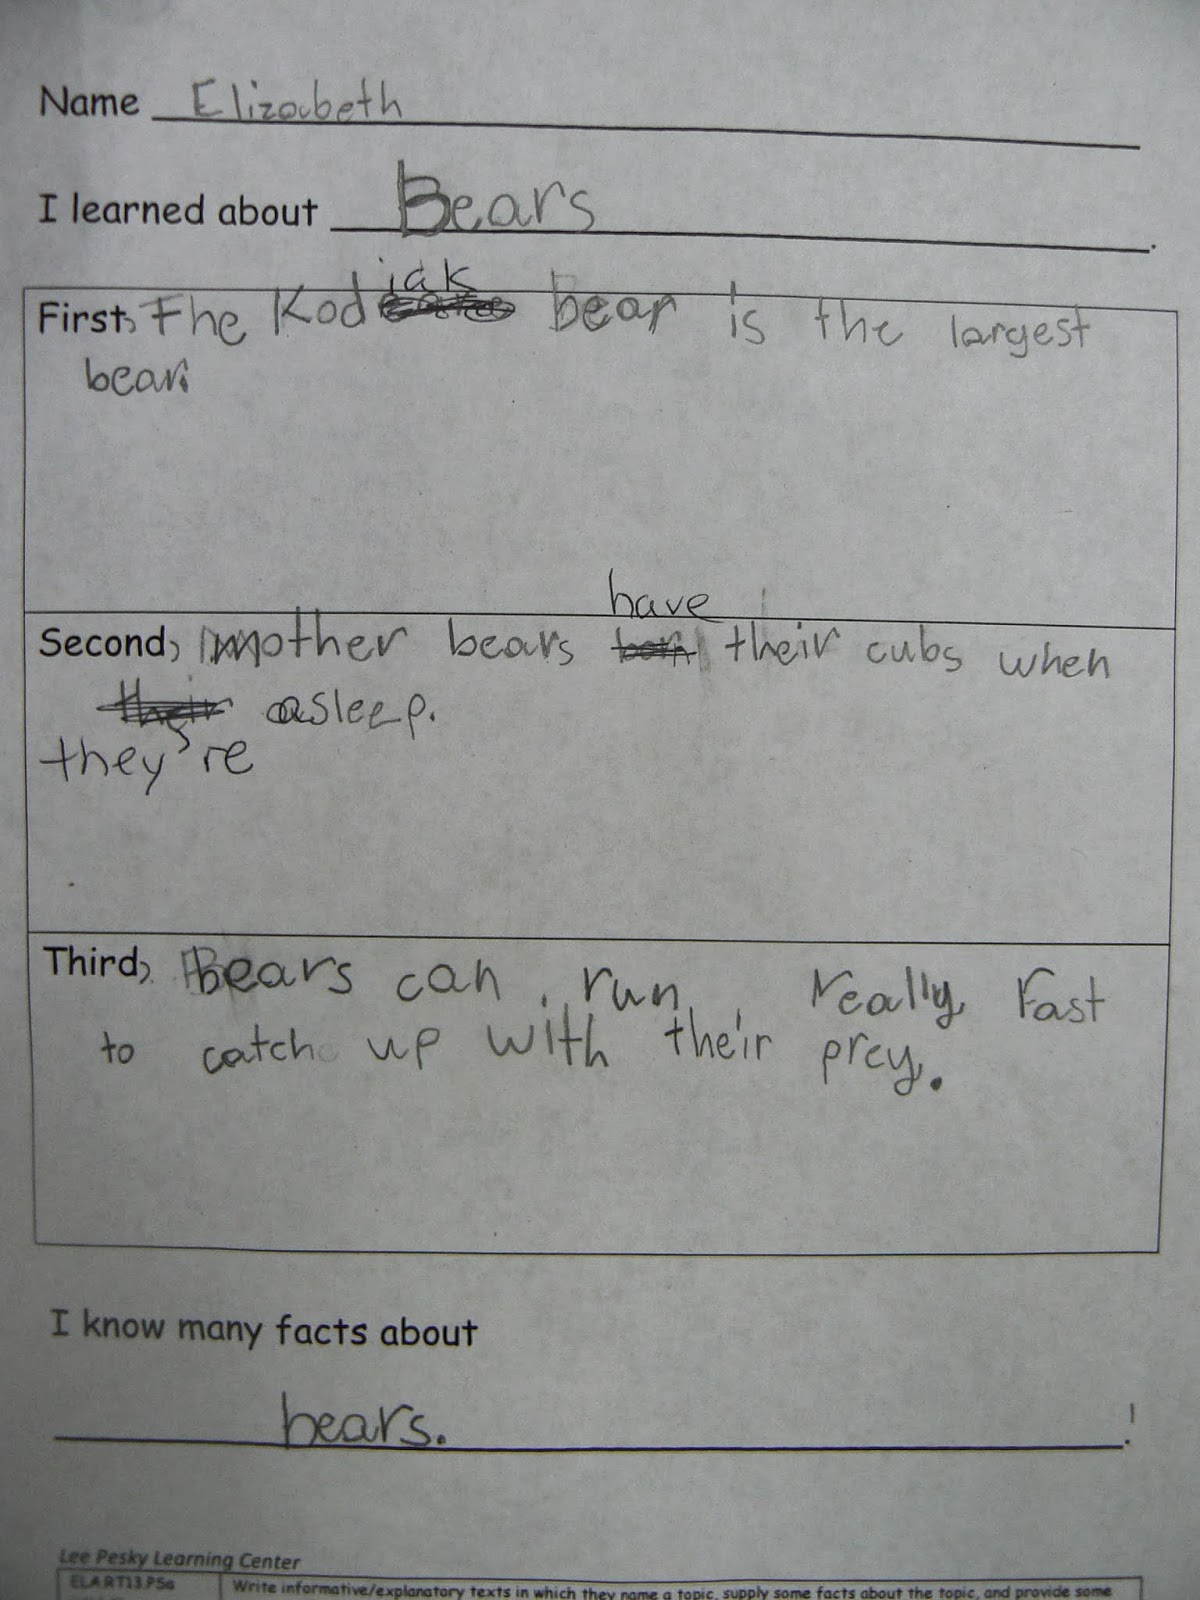 Name Elizabeth
I learned about Bears.
iak
First, The Kod bear is the largest
bear.
have
Second, mother bears born their cubs when
their asleep.
they're
Third, Bears can run really fast
to catch up with their prey.
I know many facts about
bears. !
Lee Pesky Learning Center
ELA.RT13.PSa Write informative/explanatory texts in which they name a topic, supply some facts about the topic, and provide some